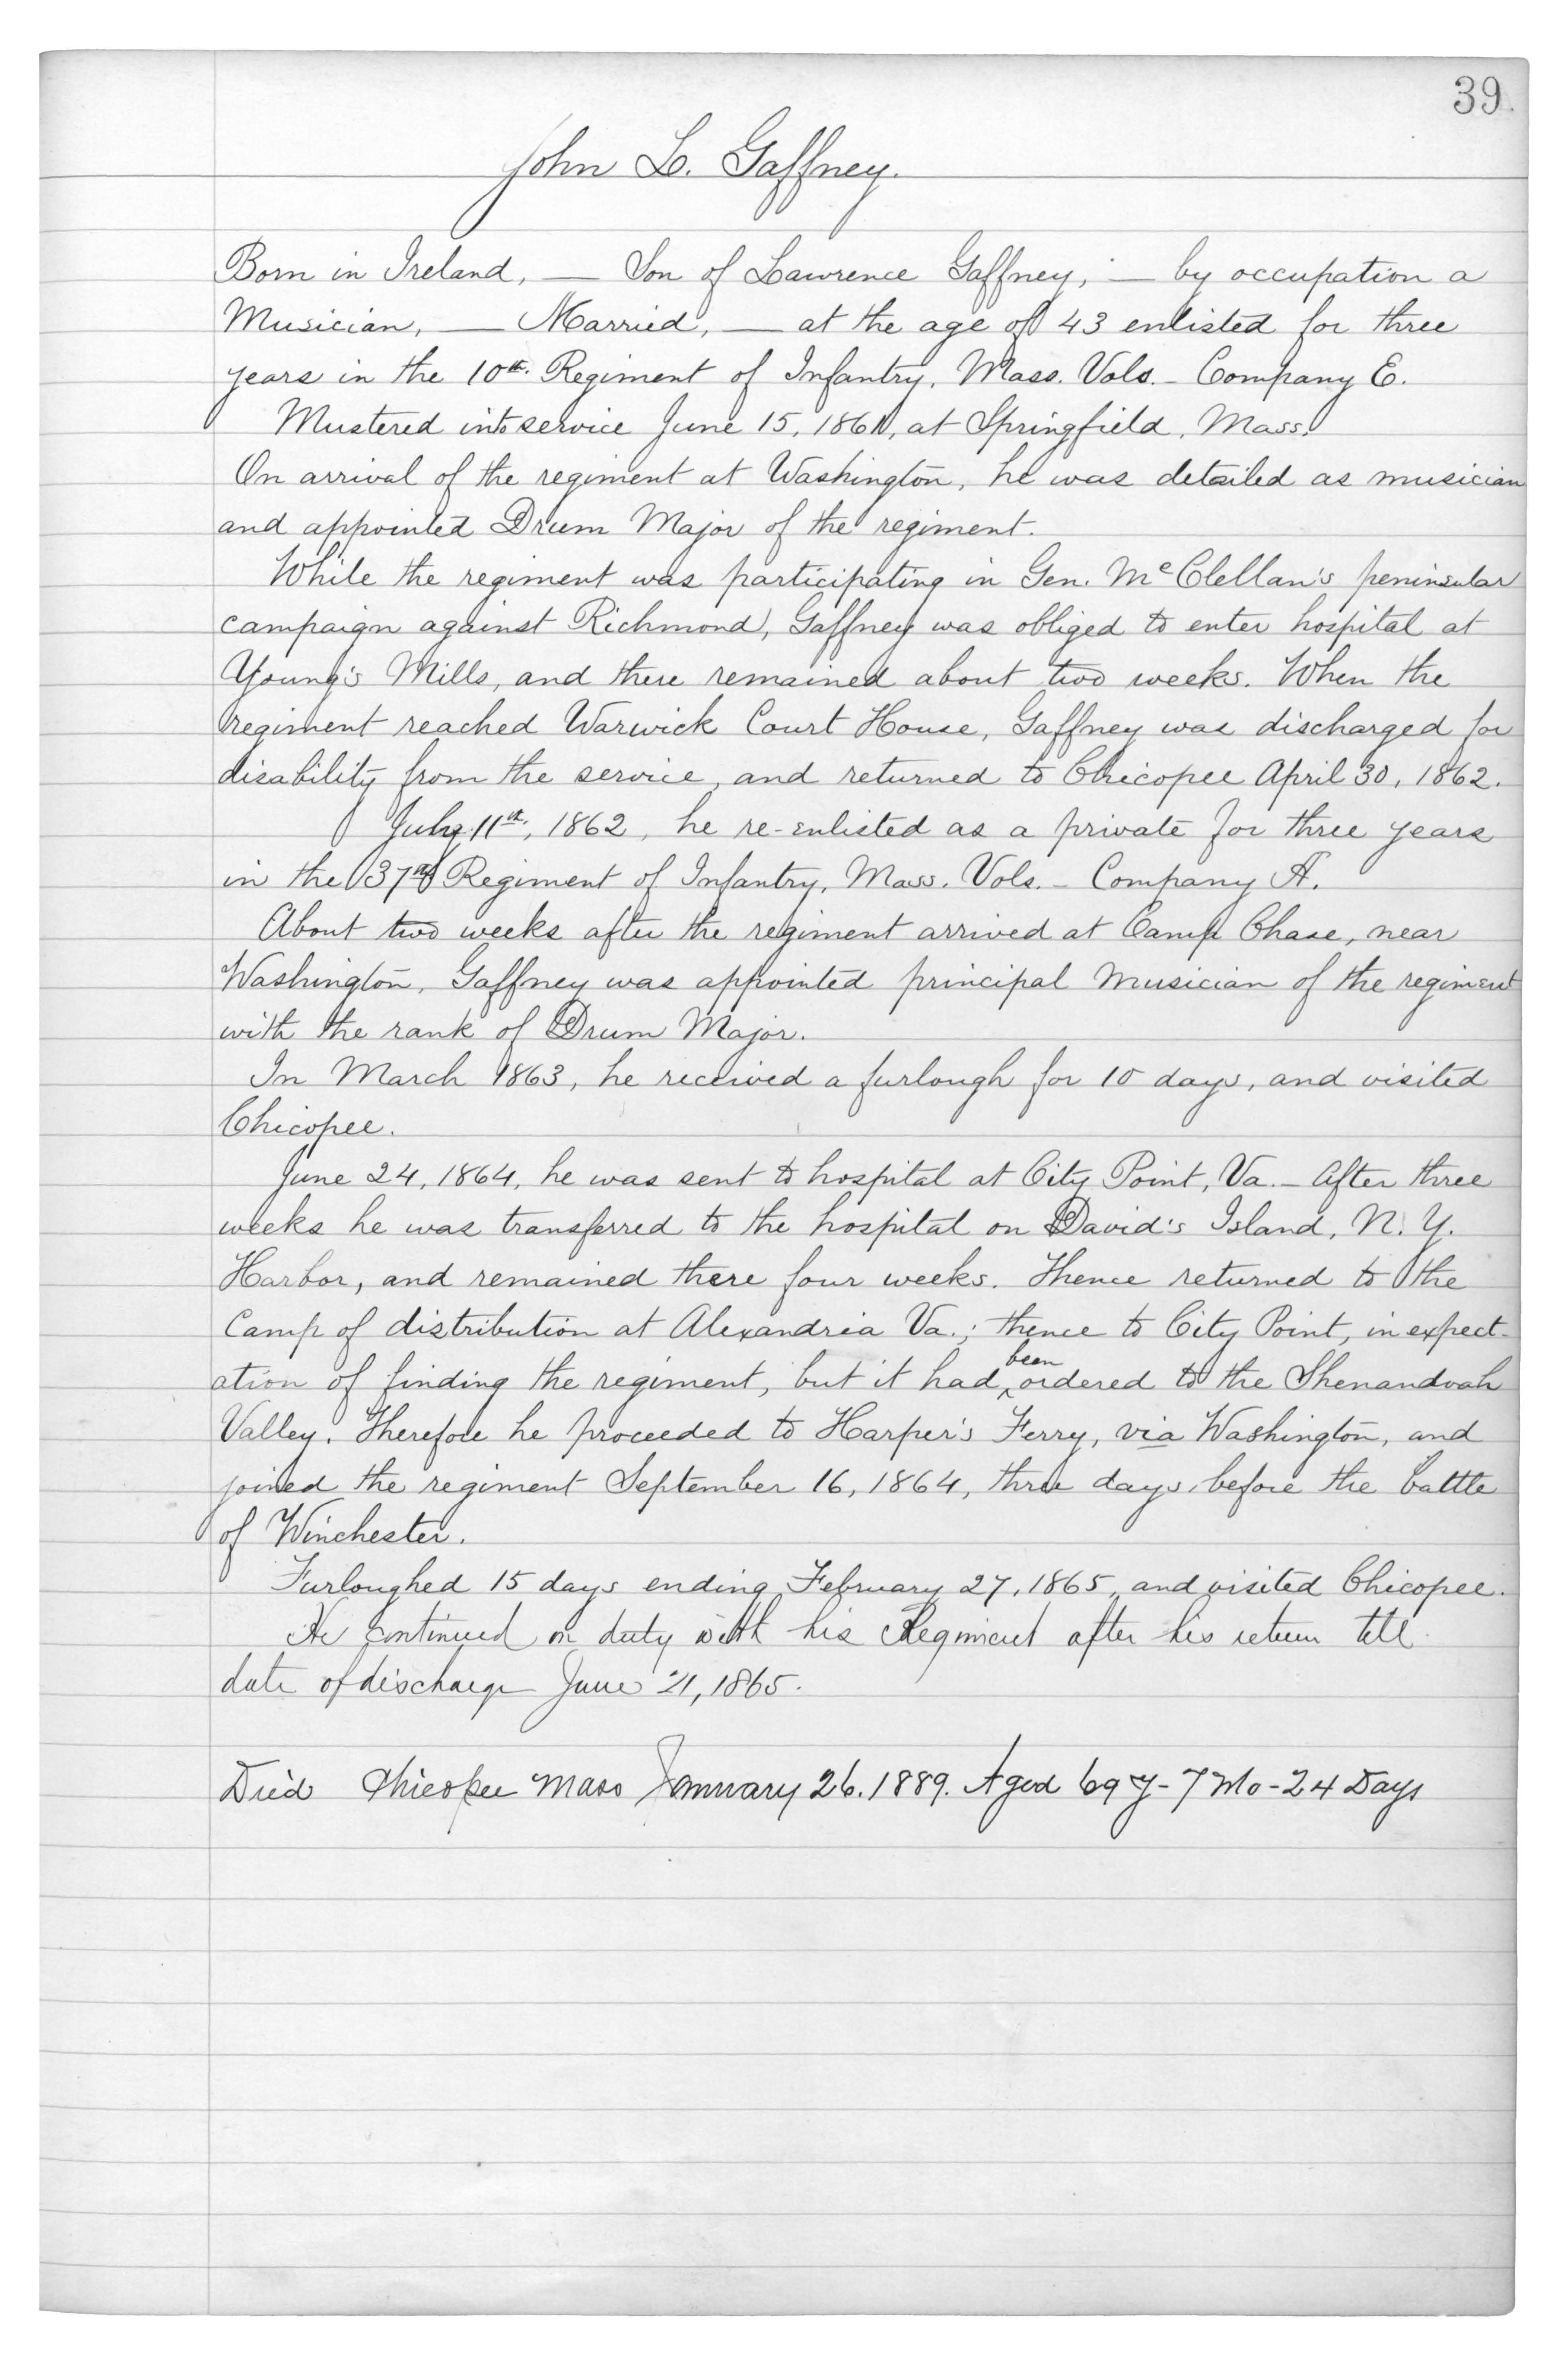 39.
John L. Gaffney.
Born in Ireland, — Son of Lawrence Gaffney, — by occupation a
Musician, — Married, — at the age of 43 enlisted for three
years in the 10th. Regiment of Infantry, Mass. Vols. – Company E.
Mustered into service June 15, 1861, at Springfield, Mass.
On arrival of the regiment at Washington, he was detailed as musician
and appointed Drum Major of the regiment.
While the regiment was participating in Gen. McClellan's peninsular
campaign against Richmond, Gaffney was obliged to enter hospital at
Young's Mills, and there remained about two weeks. When the
regiment reached Warwick Court House, Gaffney was discharged for
disability from the service, and returned to Chicopee April 30, 1862.
July 11th, 1862, he re-enlisted as a private for three years
in the 37th Regiment of Infantry, Mass. Vols. – Company A.
About two weeks after the regiment arrived at Camp Chase, near
Washington, Gaffney was appointed principal musician of the regiment
with the rank of Drum Major.
In March 1863, he received a furlough for 10 days, and visited
Chicopee.
June 24, 1864, he was sent to hospital at City Point, Va. – After three
weeks he was transferred to the hospital on David's Island, N. Y.
Harbor, and remained there four weeks. Thence returned to the
Camp of distribution at Alexandria Va.; thence to City Point, in expect-
ation of finding the regiment, but it had been ordered to the Shenandoah
Valley. Therefore he proceeded to Harper's Ferry, via Washington, and
joined the regiment September 16, 1864, three days before the battle
of Winchester.
Furloughed 15 days ending February 27, 1865, and visited Chicopee.
He continued on duty with his Regiment after his return till
date of discharge June 21, 1865.
Died Chicopee Mass January 26. 1889. Aged 69 y - 7 Mo - 24 Days